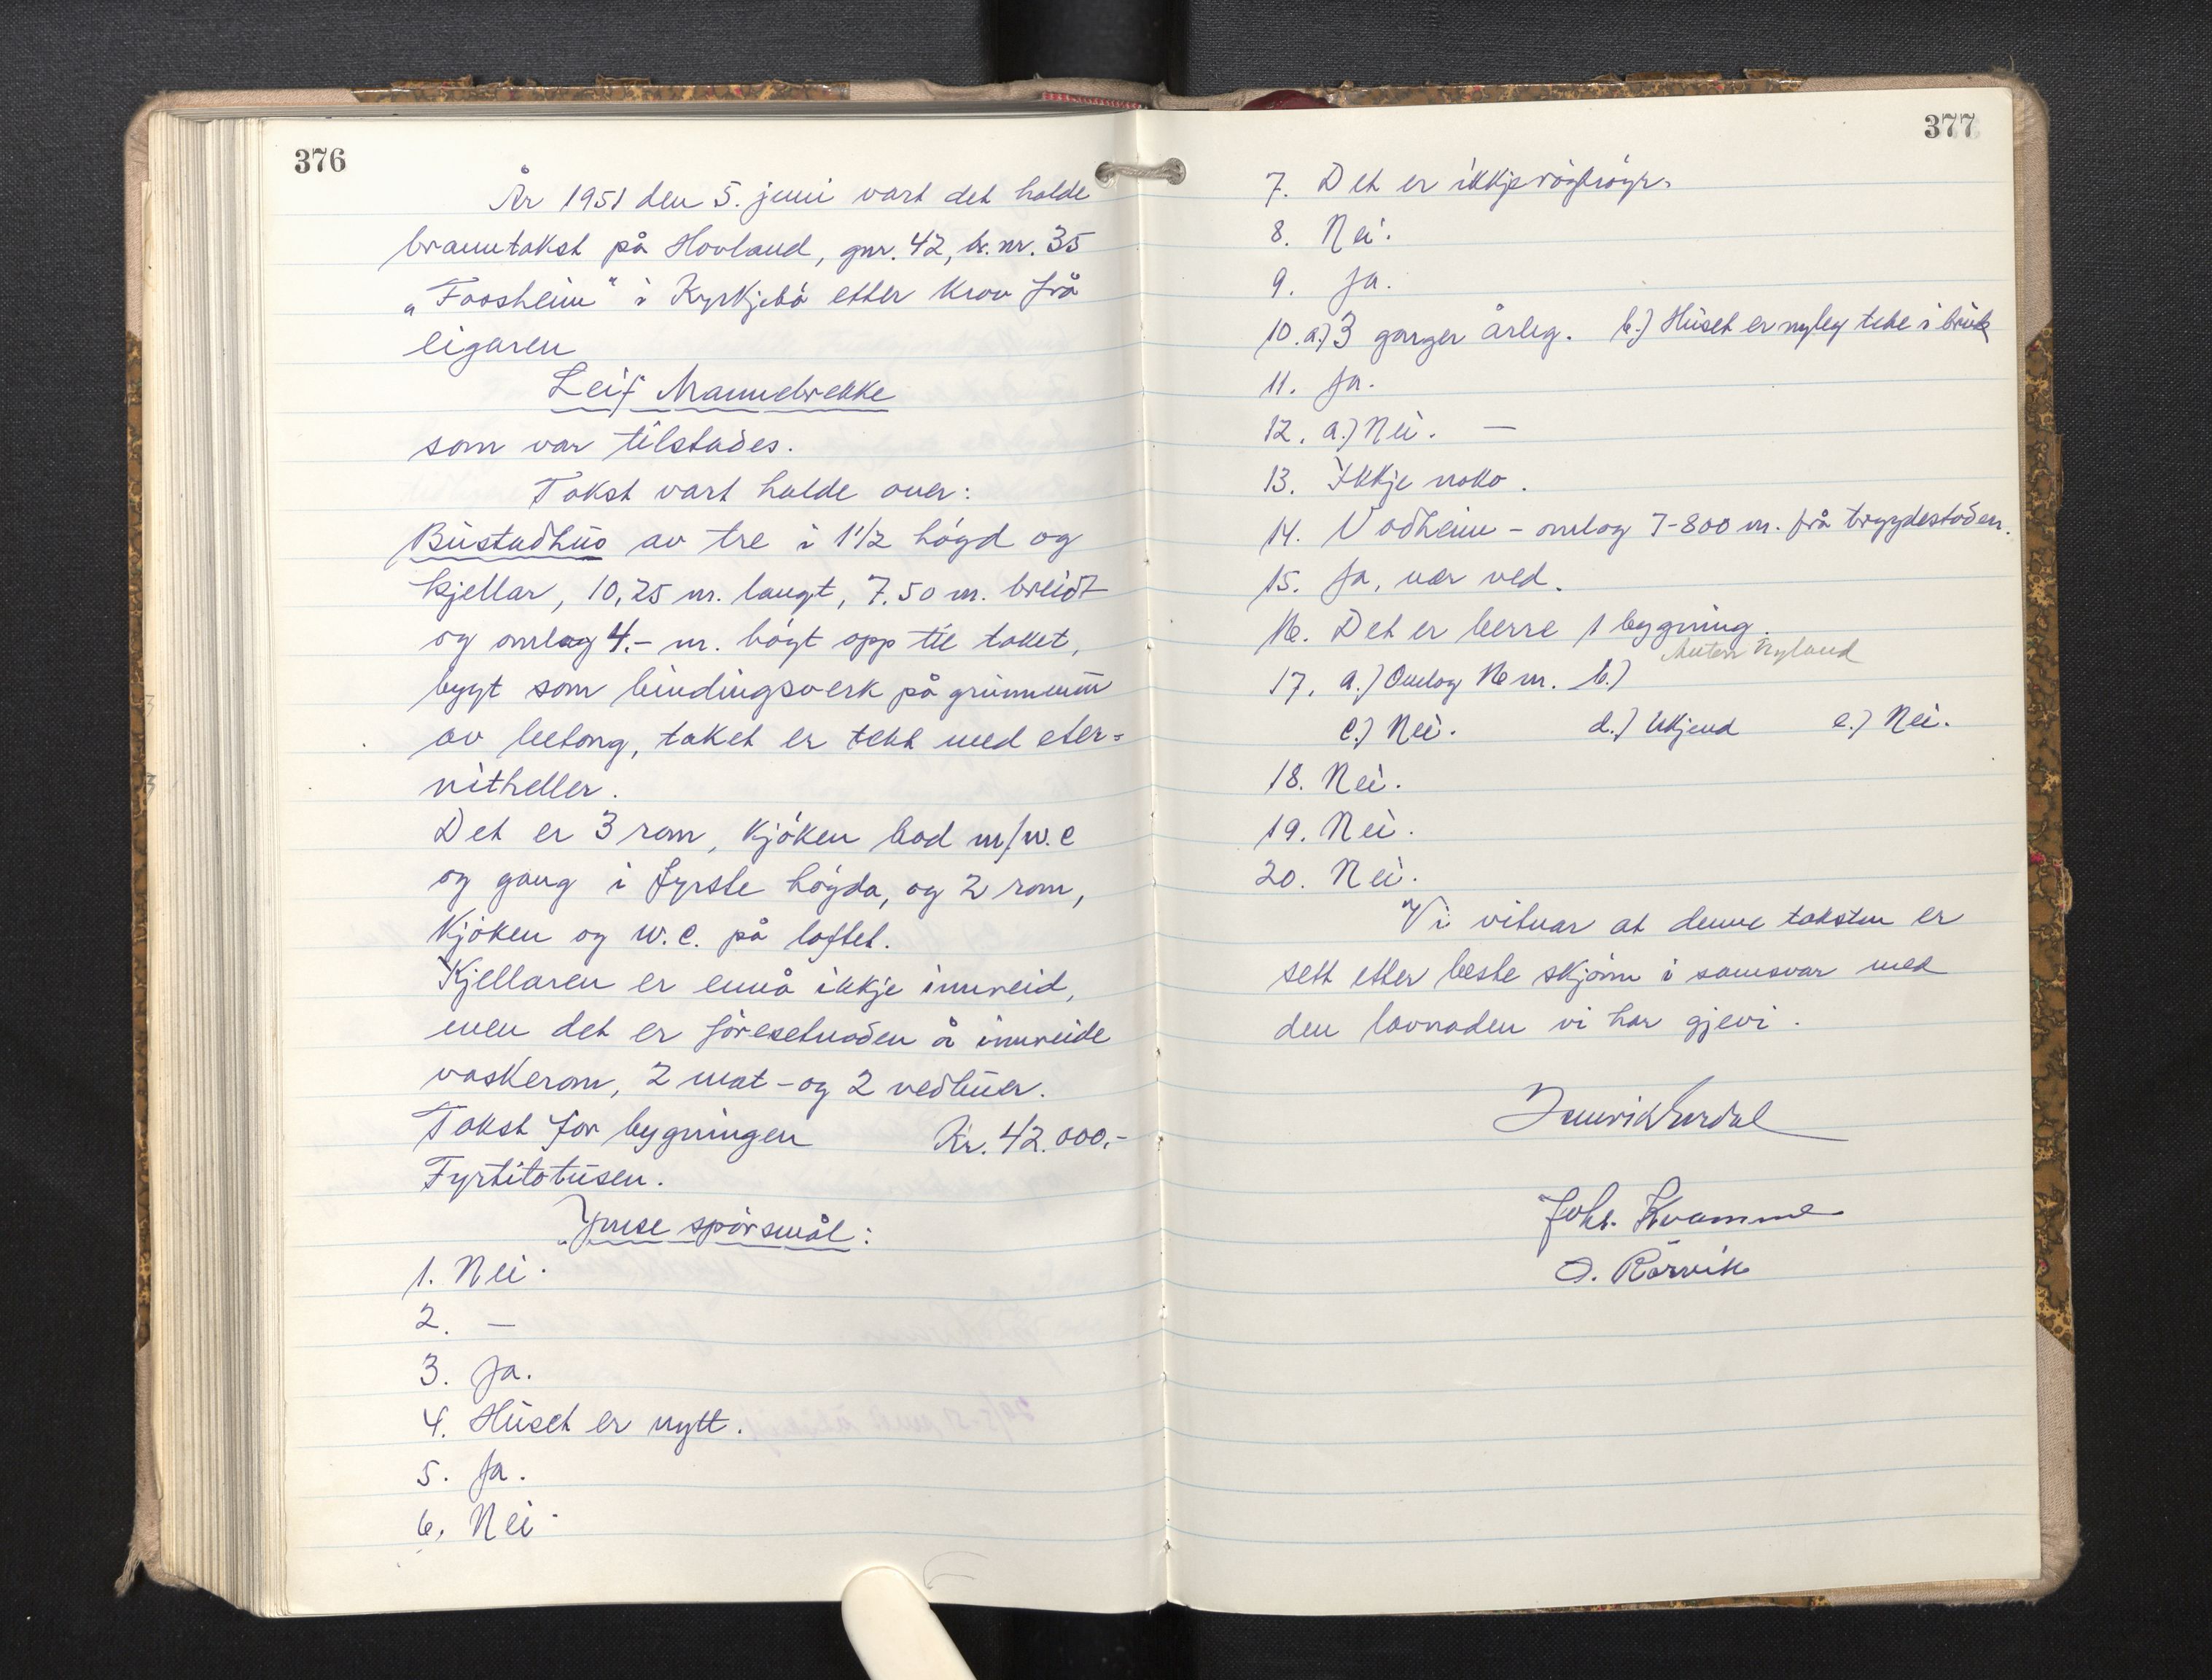 376
År 1951 den 5. juni vart det halde
branntakst på Hovland, gnr. 42, br. nr. 35
„Fossheim" i Kyrkjebø etter krav frå
eigaren
Leif Mannebrekke
som var tilstades.
Takst vart halde over:
Bustadhus av tre i 1½ høgd og
kjellar, 10,25 m. langt, 7.50 m. breidt
og omlag 4.- m. høgt opp til taket,
bygt som bindingsverk på grunnmur
av betong, taket er tekt med eter=
nitheller.
Det er 3 rom, kjøken bad m/w.c
og gang i fyrste høgda, og 2 rom,
kjøken og w.c. på loftet.
Kjellaren er ennå ikkje innreid,
men det er føresetnaden å innreide
vaskerom, 2 mat- og 2 vedbuer.
Takst for bygningen Kr. 42.000.-
Fyrtitotusen.
Ymse spørsmål:
1. Nei.
2. —
3. Ja.
4. Huset er nytt.
5. Ja.
6. Nei.
377
7. Det er ikkje
8. Nei.
9. Ja.
10. a.) 3 ganger årleg. b.) Huset er nyleg teke i bruk
11. Ja.
12. a.) Nei. —
13. Ikkje noko.
14. Vadheim - omlag 7-800 m. frå trygdestaden.
15. Ja, nær ved.
16. Det er berre 1 bygning.
Anton Nyland
17. a.) Omlag 16 m. b.)
c.) Nei. d.) Ukjend e.) Nei.
18. Nei.
19. Nei.
20. Nei.
Vi vitnar at denne taksten er
sett etter beste skjønn i samsvar med
den lovnaden vi har gjevi.
Joh. Kvamme
O. Rørvik